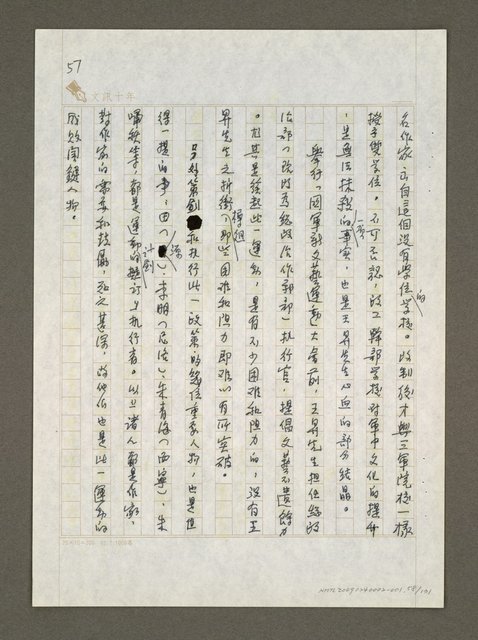 57
文訊十年
名作家,出自這個沒有學位的學校。改制後才與三軍院校一樣
授予學位。不可否認,政工幹部學校對軍中文化的提升
,是無法抹殺的一項事實,也是王昇先生心血的部分結晶。
舉行「國軍新文藝運動」大會前,王昇先生擔任總政
治部(改制為總政治作戰部)執行官,提倡文藝不遺餘力
。尤其是推動此一運動,是有不少困難和阻力的,沒有王
昇先生之折衝樽俎,那些困難和阻力即難以有所突破。
另外策劃和執行此一政策的幾位重要人物,也是值
得一提的事,田( 源)、李明(尼洛)、朱青海(西寧)、朱
嘯秋等,都是運動的計劃 上執行者。以上諸人都是作家,
對作家的需要和鼓勵,知之甚深,故他們也是此一運動的
成敗關鍵人物。
NMTL20090240002-001 58/101